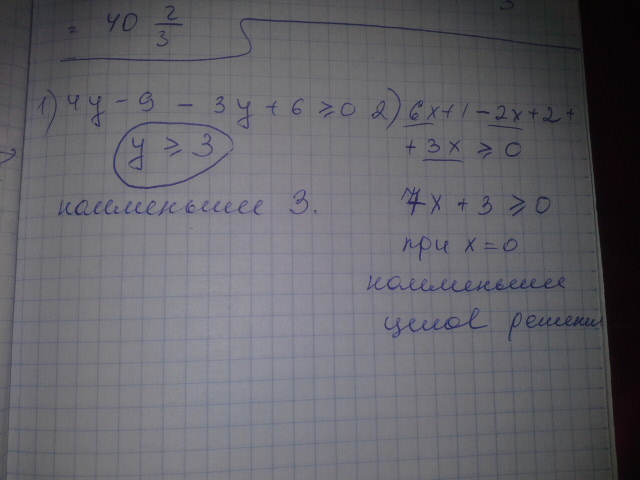 = 40 2/3
1) 4y - 9 - 3y + 6 ≥ 0
y ≥ 3
наименьшее 3.
2) 6x + 1 - 2x + 2 +
+ 3x ≥ 0
7x + 3 ≥ 0
при x = 0
наименьшее
целое решение